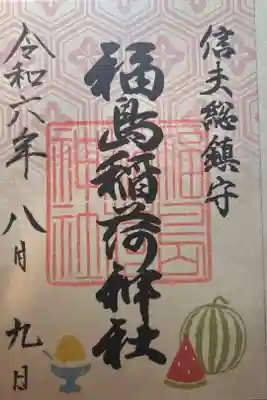 信夫総鎮守
福島稲荷神社
令和六年 八月 九日